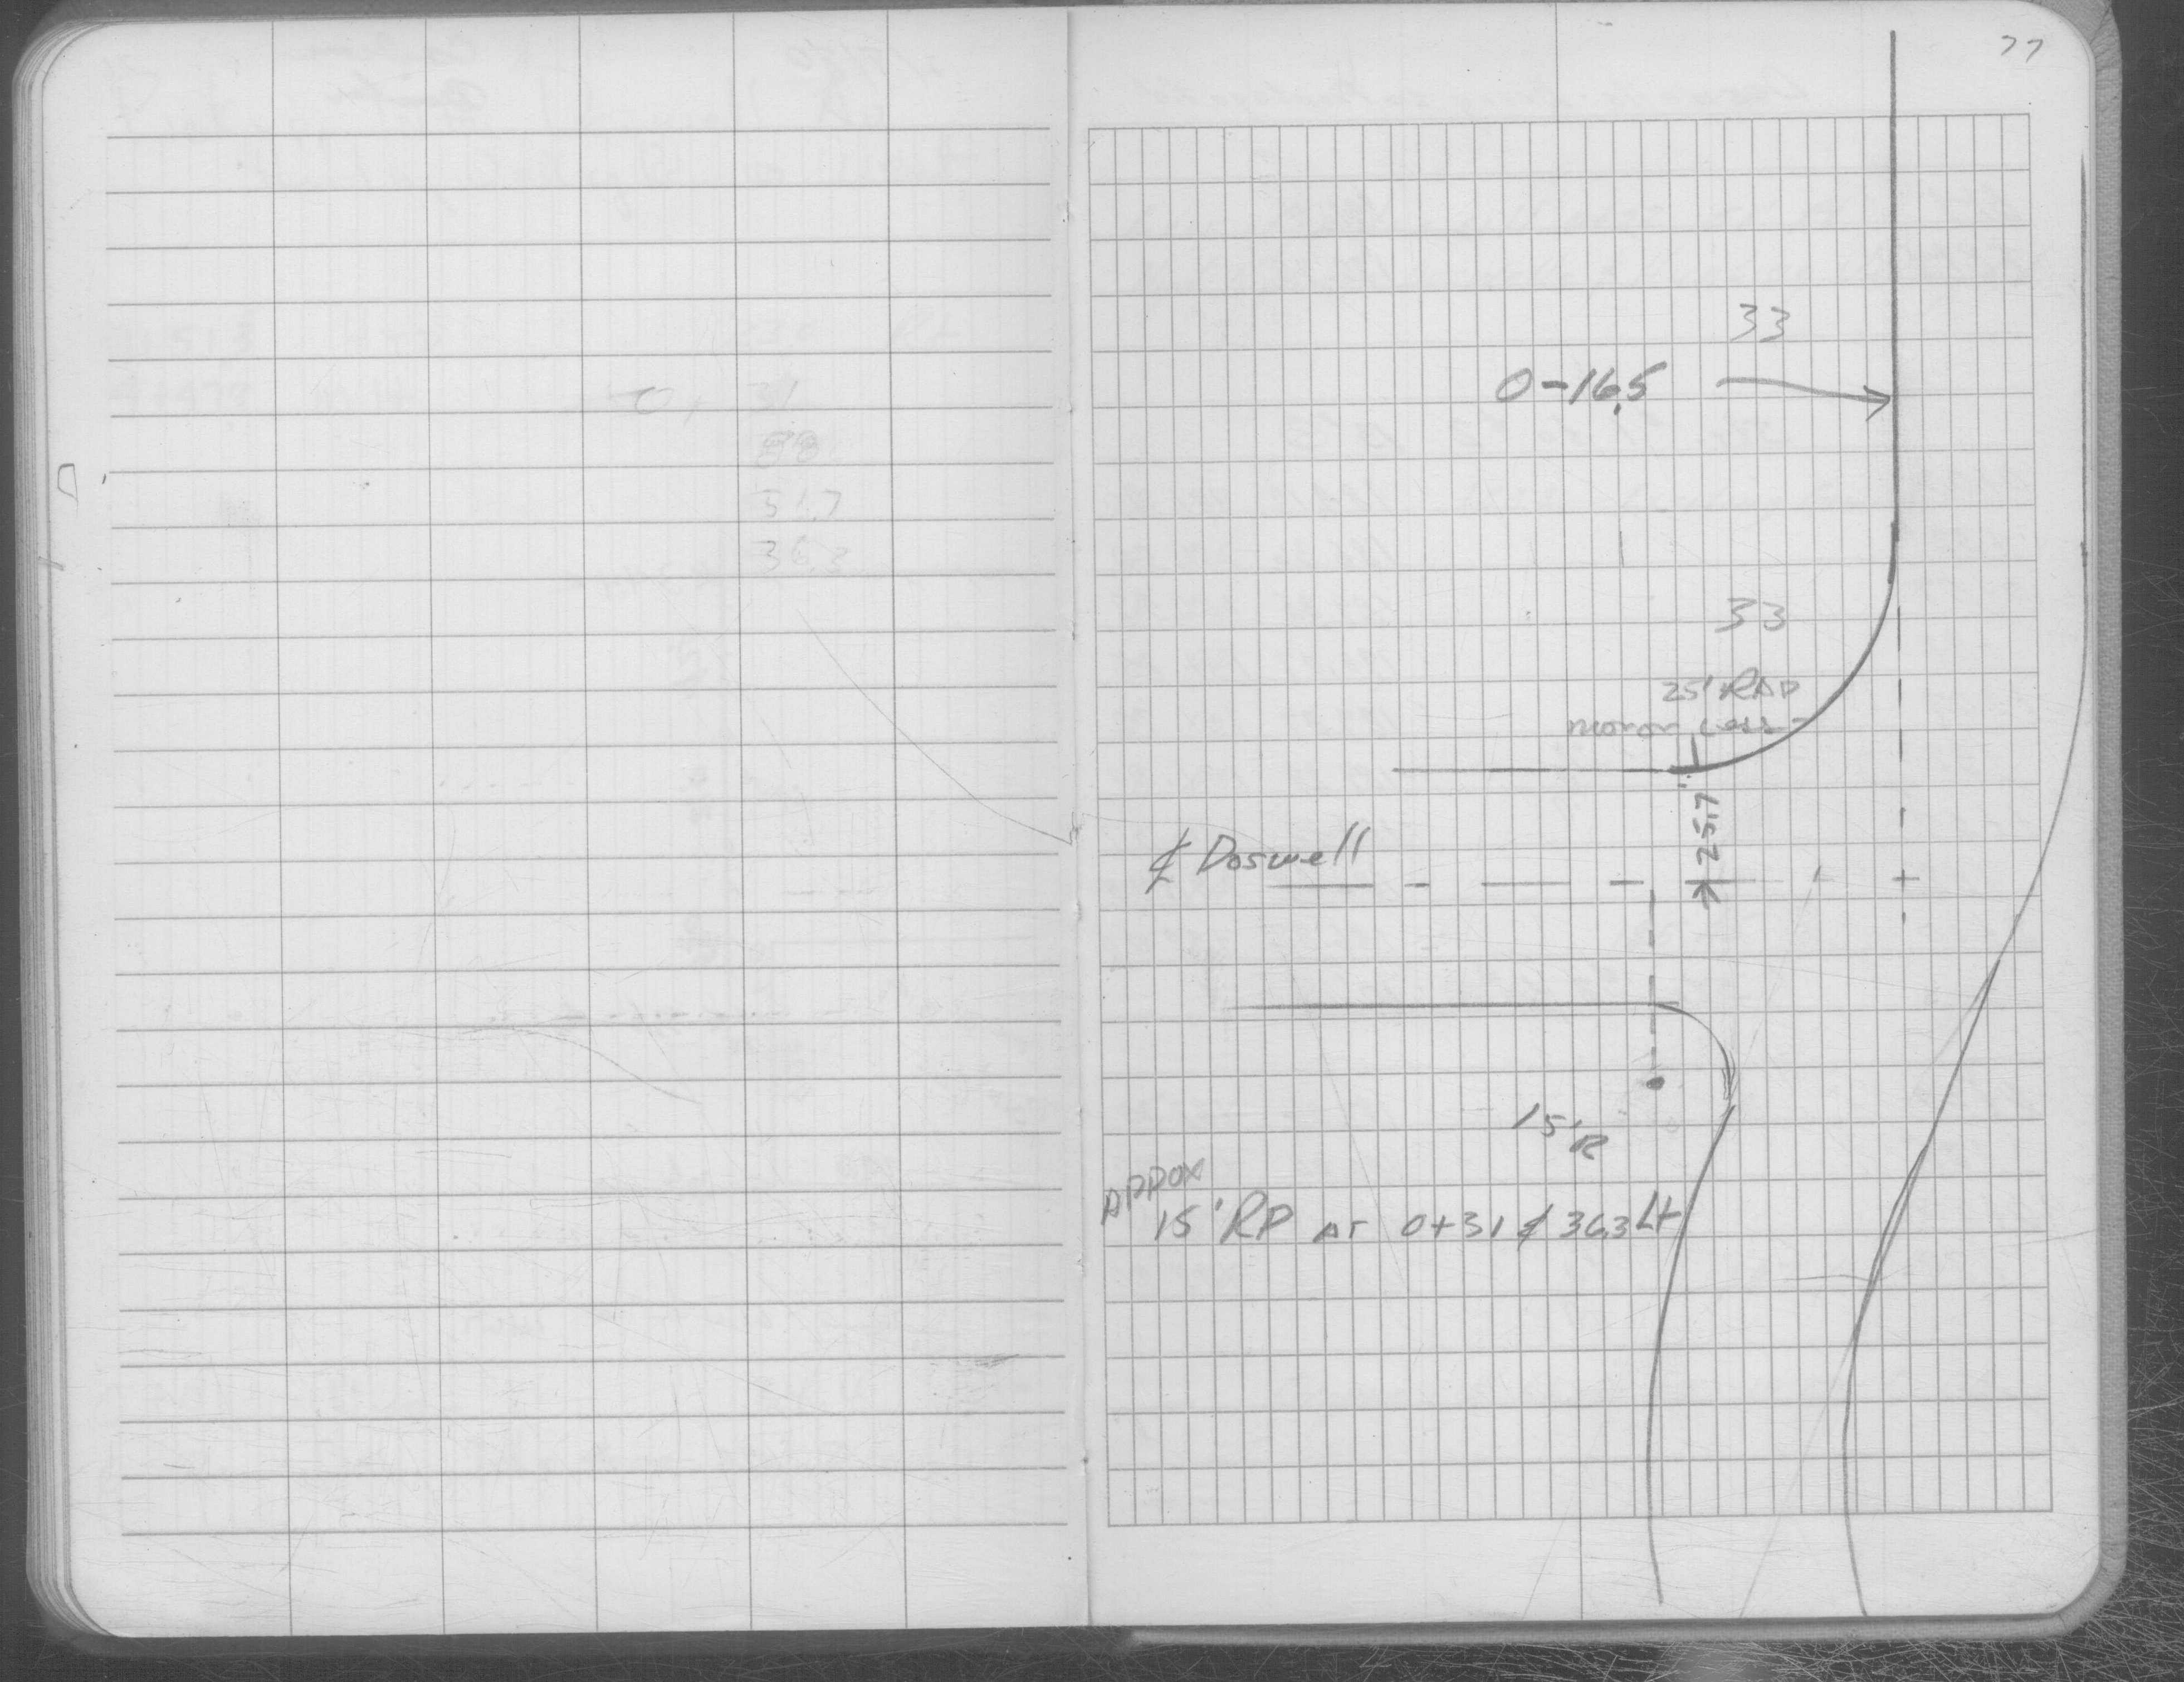 77
33
0-16.5
33
25' RAD
mor or Less
25.7
℄ Doswell
15' R
APPOX
15' RP AT 0+31 ¢ 36.3 Lt
0+ 31
88
51.7
36.3